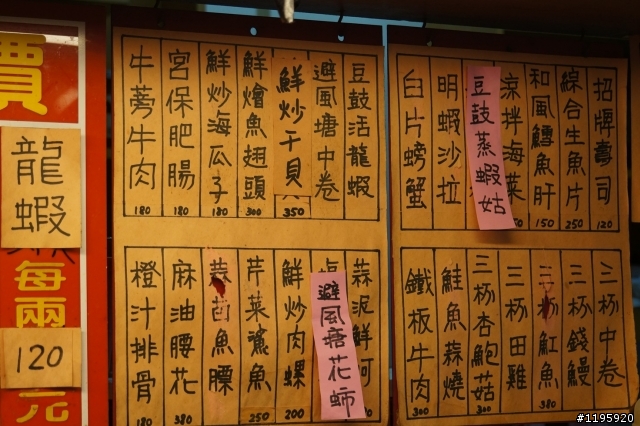 招牌壽司 120
綜合生魚片 250
和風鱈魚肝 150
涼拌海菜
豆鼓蒸蝦姑
明蝦沙拉
臼片螃蟹
三杯中卷
三杯錢鰻
三杯魟魚 380
三杯田雞
三杯杏鮑菇 300
鮭魚蒜燒
鐵板牛肉 300
豆鼓活龍蝦
避風塘中卷
鮮炒干貝 350
鮮燴魚翅頭 300
鮮炒海瓜子 180
宮保肥腸 180
牛蒡牛肉 180
蒜泥鮮蚵
避風塘花
鮮炒肉螺 200
芹菜鯊魚 250
蒜苗魚膘
麻油腰花 380
橙汁排骨 180
價
龍蝦
每兩
120
元
#1195920